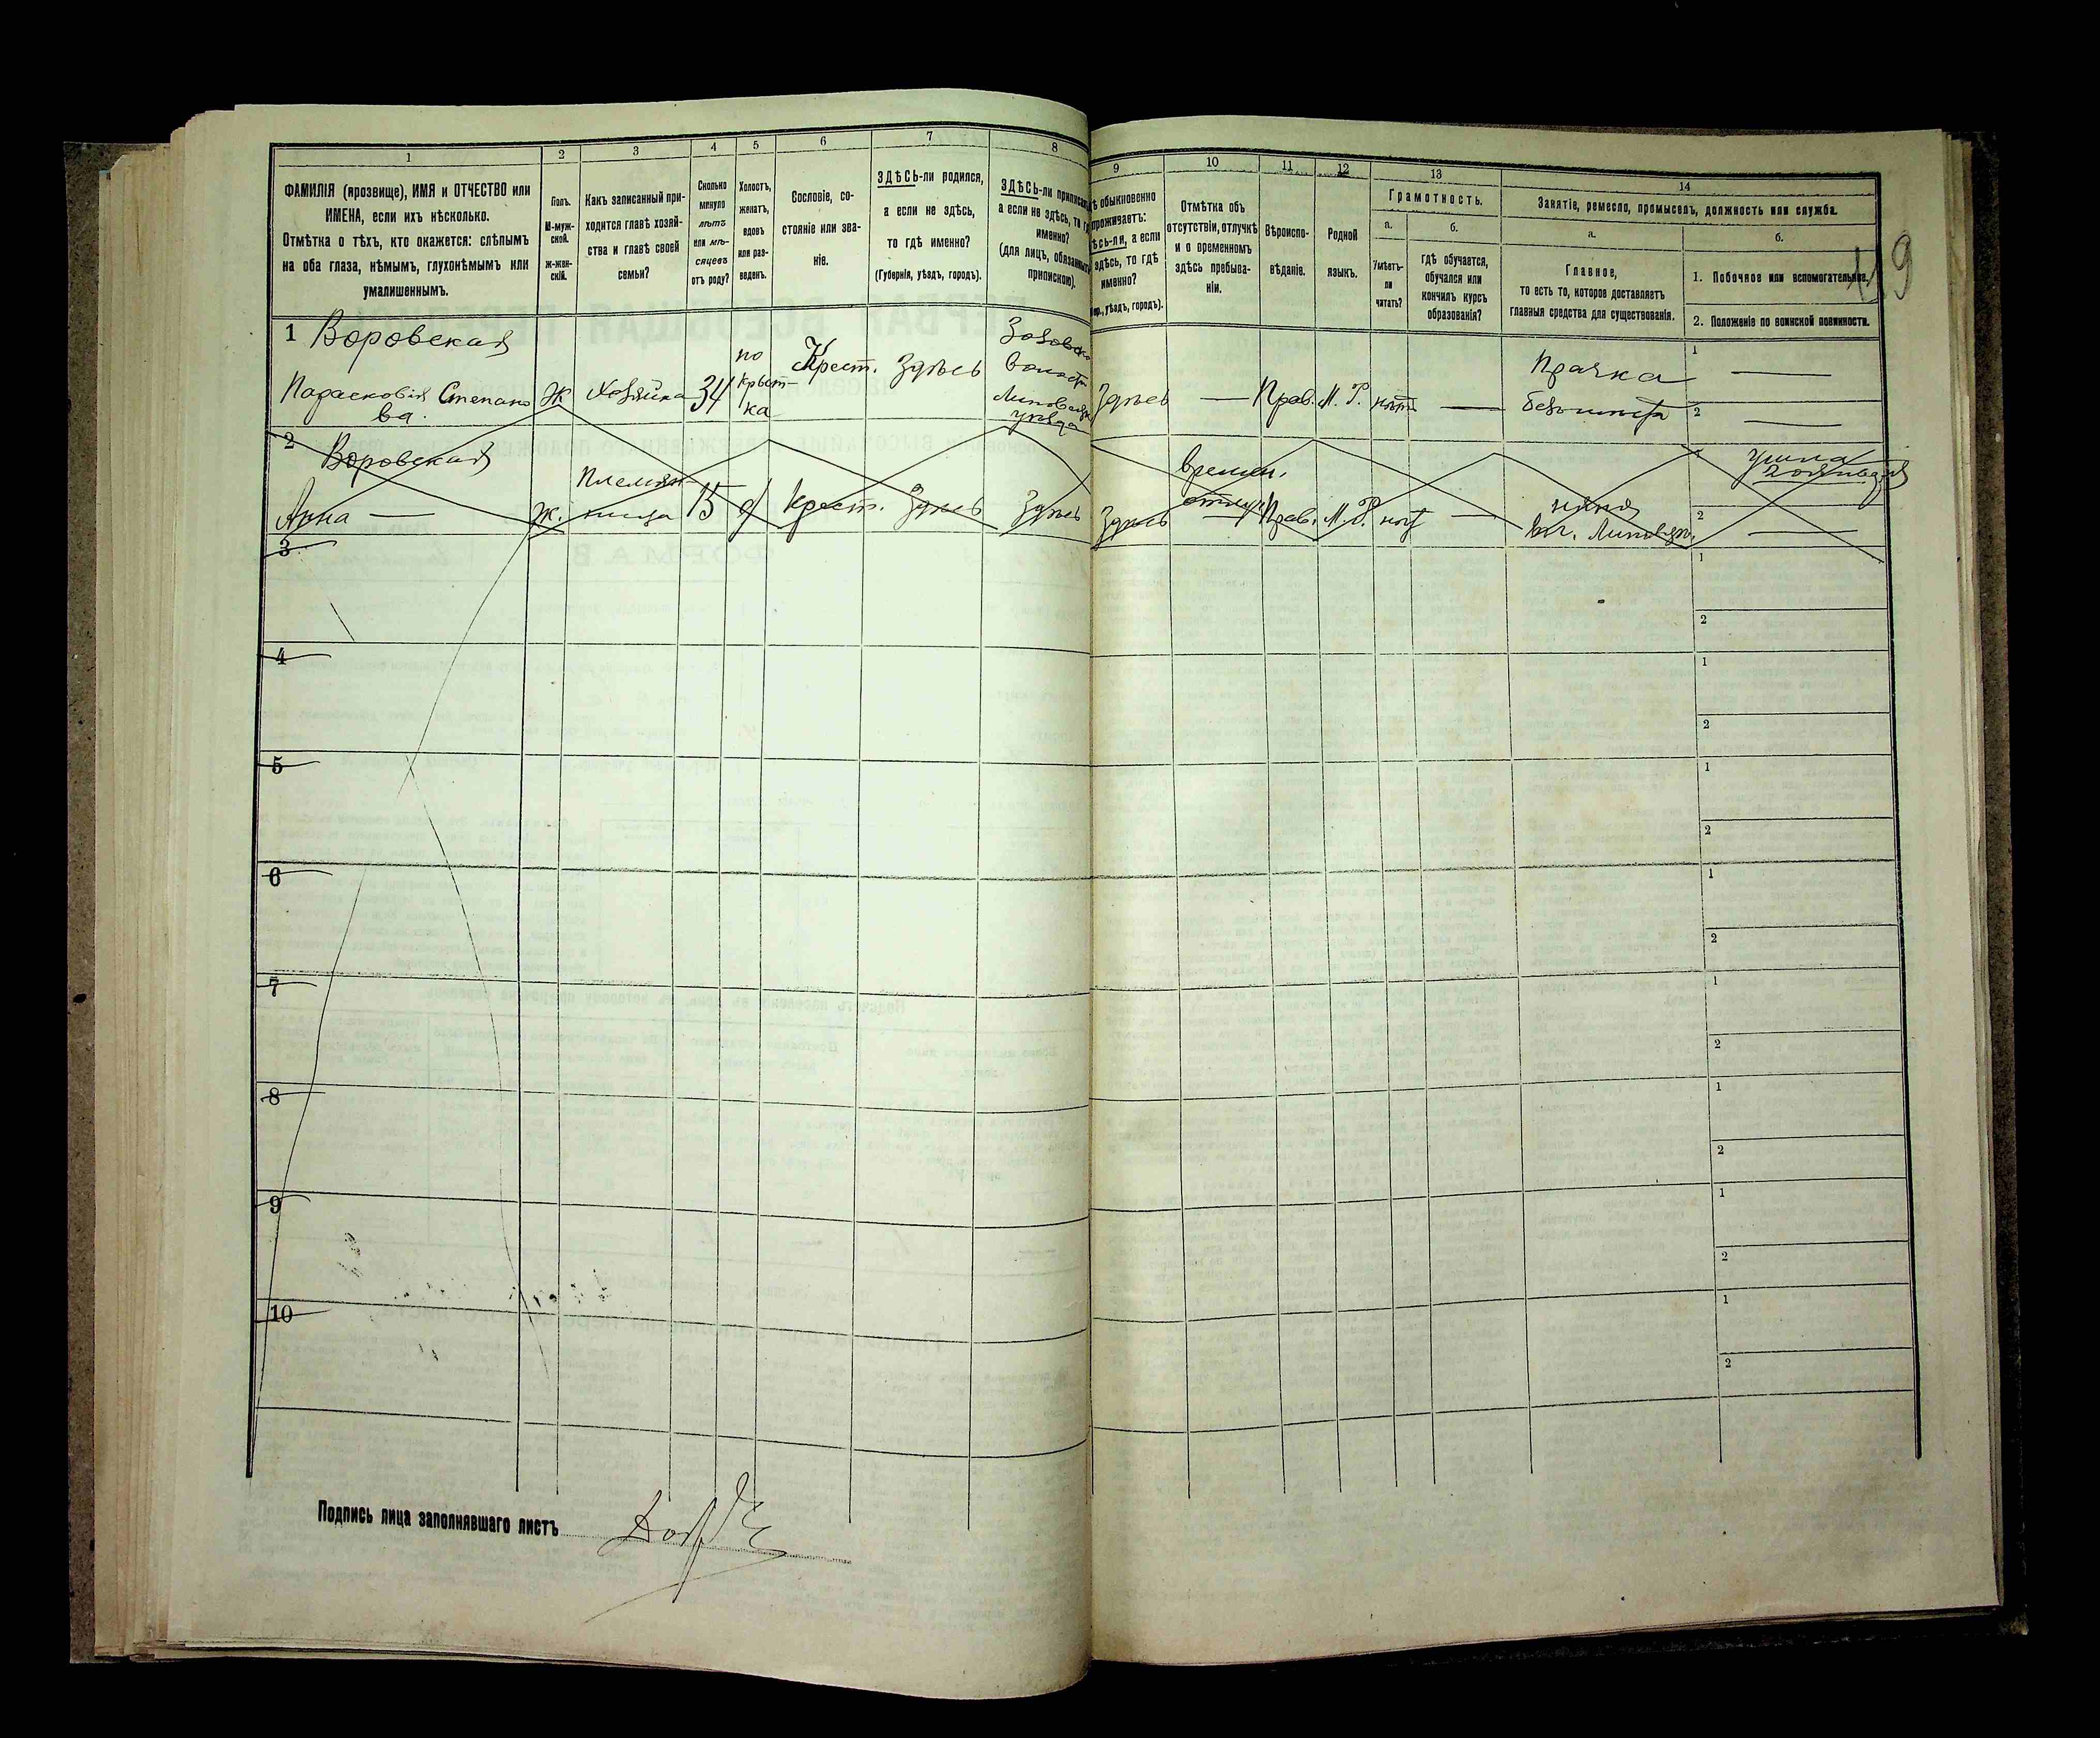 1
2
3
4
5
6
7
8
ФАМИЛІЯ (прозвище), ИМЯ и ОТЧЕСТВО или
ИМЕНА, если ихъ нѣсколько.
Отмѣтка о тѣхъ, кто окажется: слѣпымъ
на оба глаза, нѣмымъ, глухонѣмымъ или
умалишеннымъ.
Полъ.
М-муж-
ской.
ж-жен-
скій.
Какъ записанный при-
ходится главѣ хозяй-
ства и главѣ своей
семьи?
Сколько
минуло
лѣтъ
или мѣ-
сяцевъ
отъ роду?
Холостъ,
женатъ,
вдовъ
или раз-
веденъ.
Сословіе, со-
стояніе или зва-
ніе.
ЗДѢСЬ-ли родился,
а если не здѣсь,
то гдѣ именно?
(Губернія, уѣздъ, городъ).
ЗДѢСЬ-ли приписанъ,
а если не здѣсь, то гдѣ
именно?
(для лицъ, обязанныхъ
припискою).
9
10
11
12
13
14
ѣ обыкновенно
проживаетъ:
ѣсь-ли, а если
здѣсь, то гдѣ
именно?
уѣздъ, городъ).
Отмѣтка объ
отсутствіи, отлучкѣ
и о временномъ
здѣсь пребыва-
ніи.
Вѣроиспо-
вѣданіе.
Родной
языкъ.
Грамотность.
а.
Умѣетъ-
ли
читать?
б.
гдѣ обучается,
обучался или
кончилъ курсъ
образованія?
Занятіе, ремесло, промыселъ, должность или служба.
а.
Главное,
то есть то, которое доставляетъ
главныя средства для существованія.
б.
1. Побочное или вспомогательное.
2. Положеніе по воинской повинности.
1 Воровская
Парасковія Степано
ва.
Ж
Хозяйка
34
по
ка
Крест.
Здѣсь
Здѣсь
—
Прав.
М. Р.
нѣтъ
—
Прачка
1 —
2 —
2 Воровская
Анна —
Ж.
Племян
ница
15
д
Крест.
Здѣсь
Здѣсь
Здѣсь
времен.
Прав.
М. Р.
нѣт
—
няня
1
2 —
3
1
2
4
1
2
5
1
2
6
1
2
7
1
2
8
1
2
9
1
2
10
1
2
Подпись лица заполнявшаго листъ